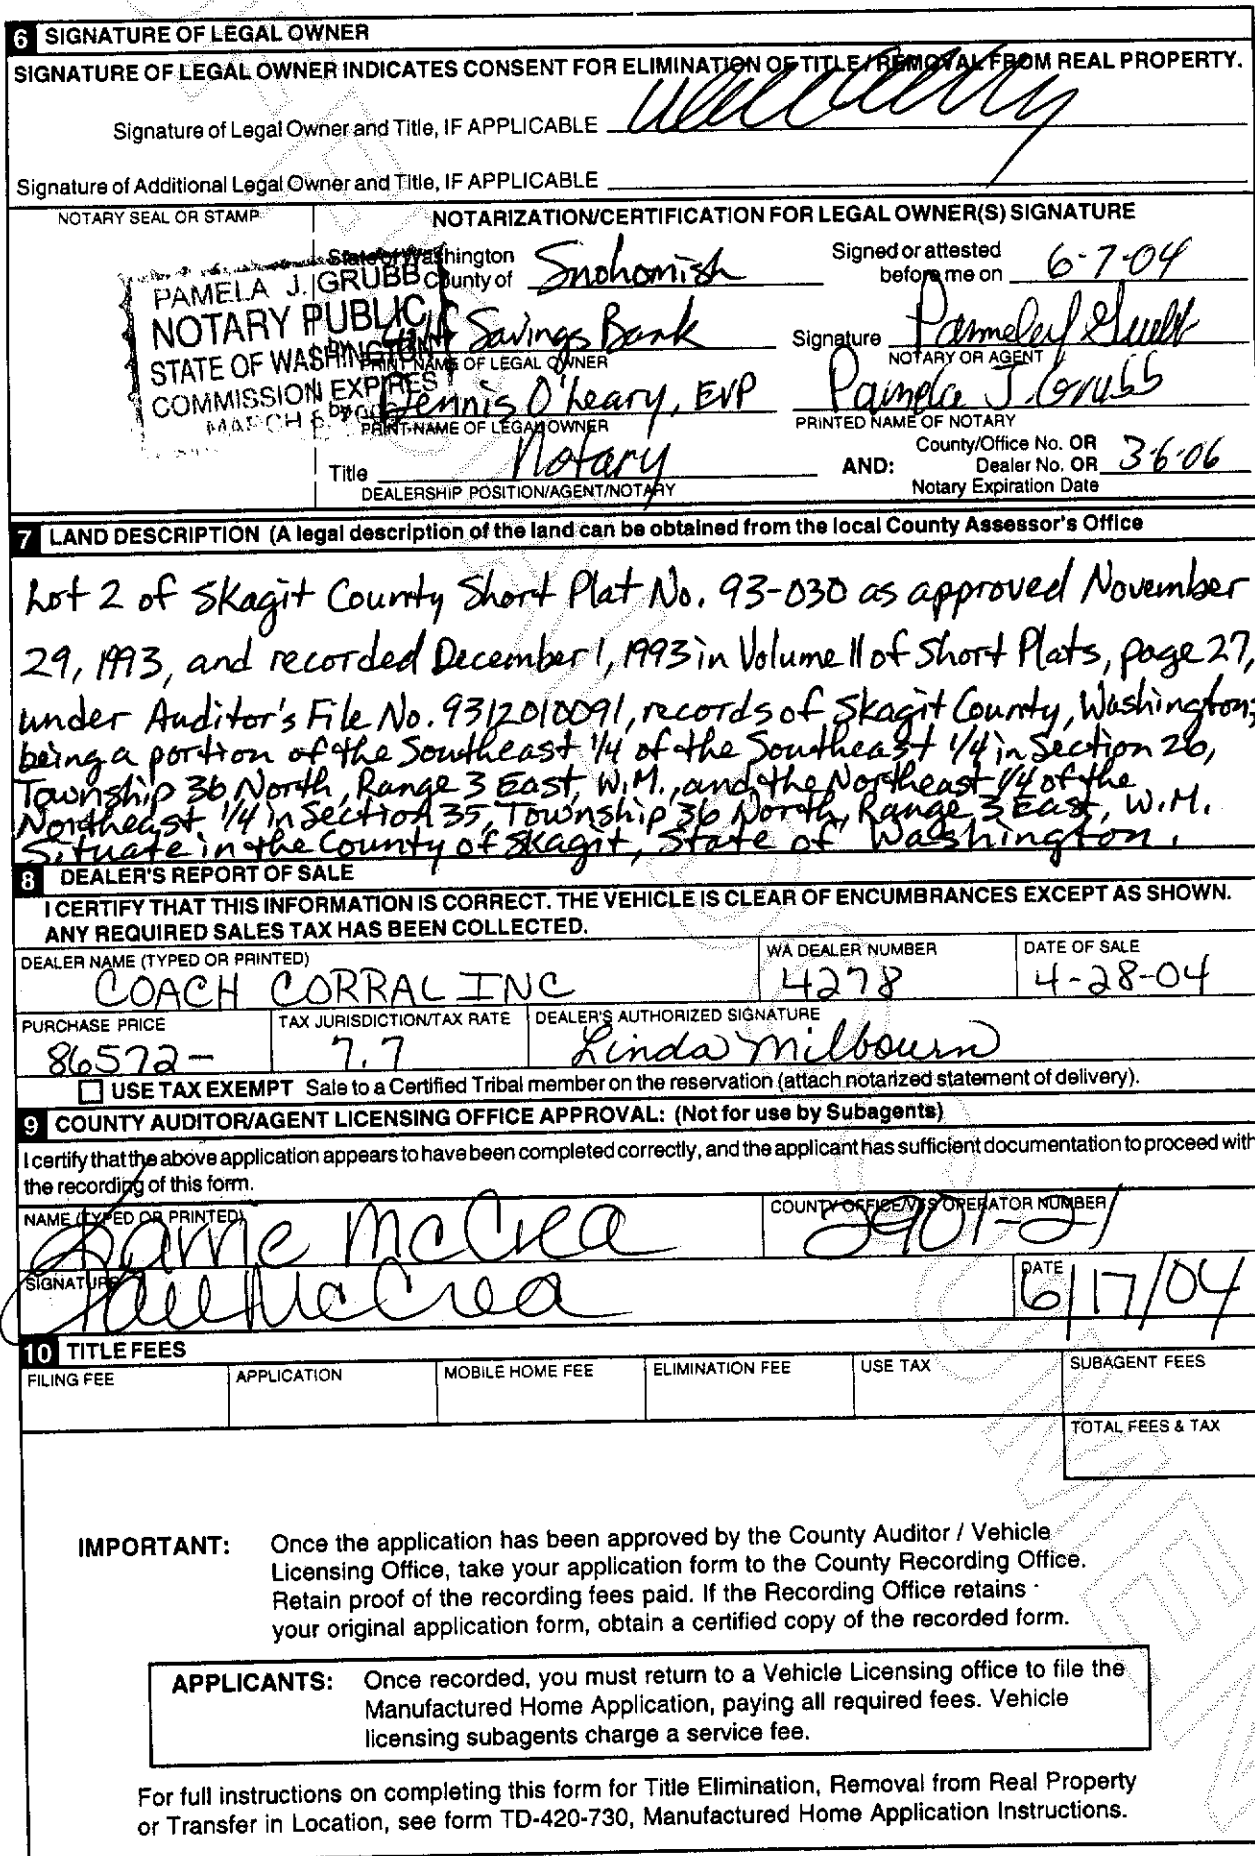 6 SIGNATURE OF LEGAL OWNER
SIGNATURE OF LEGAL OWNER INDICATES CONSENT FOR ELIMINATION OF TITLE / REMOVAL FROM REAL PROPERTY.
Signature of Legal Owner and Title, IF APPLICABLE
Signature of Additional Legal Owner and Title, IF APPLICABLE
NOTARY SEAL OR STAMP
NOTARIZATION/CERTIFICATION FOR LEGAL OWNER(S) SIGNATURE
PAMELA J. GRUBB
NOTARY PUBLIC
STATE OF WASHINGTON
COMMISSION EXPIRES
MARCH 6,
State of Washington
County of Snohomish
Signed or attested
before me on 6-7-04
Savings Bank
PRINT NAME OF LEGAL OWNER
Signature Pamela J Grubb
NOTARY OR AGENT
by Dennis O'Leary, EVP
PRINT NAME OF LEGAL OWNER
Pamela J. Grubb
PRINTED NAME OF NOTARY
Title Notary
DEALERSHIP POSITION/AGENT/NOTARY
AND: County/Office No. OR
Dealer No. OR 3-6-06
Notary Expiration Date
7 LAND DESCRIPTION (A legal description of the land can be obtained from the local County Assessor's Office
Lot 2 of Skagit County Short Plat No. 93-030 as approved November
29, 1993, and recorded December 1, 1993 in Volume 11 of Short Plats, page 27,
under Auditor's File No. 9312010091, records of Skagit County, Washington;
being a portion of the Southeast 1/4 of the Southeast 1/4 in Section 26,
Township 36 North, Range 3 East, W.M., and the Northeast 1/4 of the
Northeast 1/4 in Section 35, Township 36 North, Range 3 East, W.M.
Situate in the County of Skagit, State of Washington.
8 DEALER'S REPORT OF SALE
I CERTIFY THAT THIS INFORMATION IS CORRECT. THE VEHICLE IS CLEAR OF ENCUMBRANCES EXCEPT AS SHOWN.
ANY REQUIRED SALES TAX HAS BEEN COLLECTED.
DEALER NAME (TYPED OR PRINTED)
COACH CORRAL INC
WA DEALER NUMBER
4278
DATE OF SALE
4-28-04
PURCHASE PRICE
86572-
TAX JURISDICTION/TAX RATE
7.7
DEALER'S AUTHORIZED SIGNATURE
Linda Milbourn
USE TAX EXEMPT Sale to a Certified Tribal member on the reservation (attach notarized statement of delivery).
9 COUNTY AUDITOR/AGENT LICENSING OFFICE APPROVAL: (Not for use by Subagents)
I certify that the above application appears to have been completed correctly, and the applicant has sufficient documentation to proceed with
the recording of this form.
NAME (TYPED OR PRINTED)
McCrea
COUNTY OFFICE/VFS OPERATOR NUMBER
2901-21
SIGNATURE
McCrea
DATE
6/17/04
10 TITLE FEES
FILING FEE
APPLICATION
MOBILE HOME FEE
ELIMINATION FEE
USE TAX
SUBAGENT FEES
TOTAL FEES & TAX
IMPORTANT: Once the application has been approved by the County Auditor / Vehicle
Licensing Office, take your application form to the County Recording Office.
Retain proof of the recording fees paid. If the Recording Office retains
your original application form, obtain a certified copy of the recorded form.
APPLICANTS: Once recorded, you must return to a Vehicle Licensing office to file the
Manufactured Home Application, paying all required fees. Vehicle
licensing subagents charge a service fee.
For full instructions on completing this form for Title Elimination, Removal from Real Property
or Transfer in Location, see form TD-420-730, Manufactured Home Application Instructions.